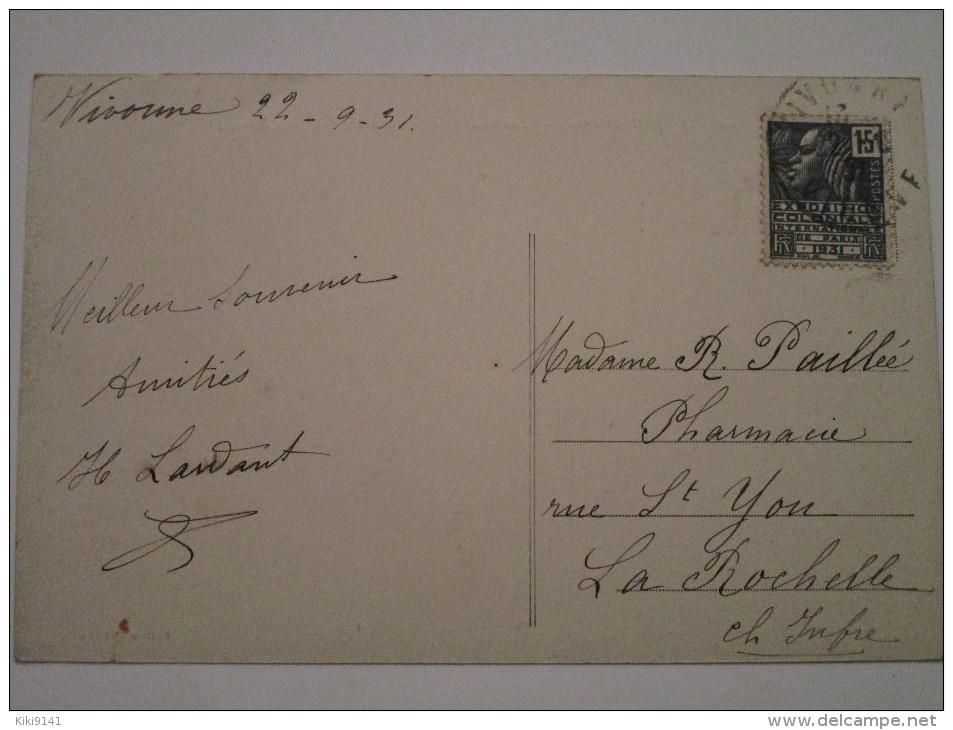 Vivonne 22-9-31.
Meilleur Souvenir
Amitiés
H Lardant
15c
POSTES
EXPOSITION
COLONIALE
INTERNATIONALE
DE PARIS
1931
Madame R. Paillée
Pharmacie
rue St You
La Rochelle
ch Infre
Kiki9141
www.delcampe.net